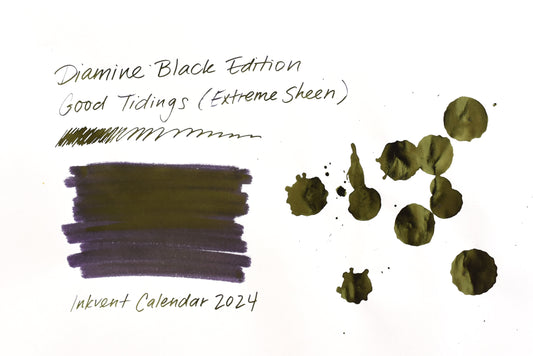 Diamine Black Edition
Good Tidings (Extreme Sheen)
Inkvent Calendar 2024